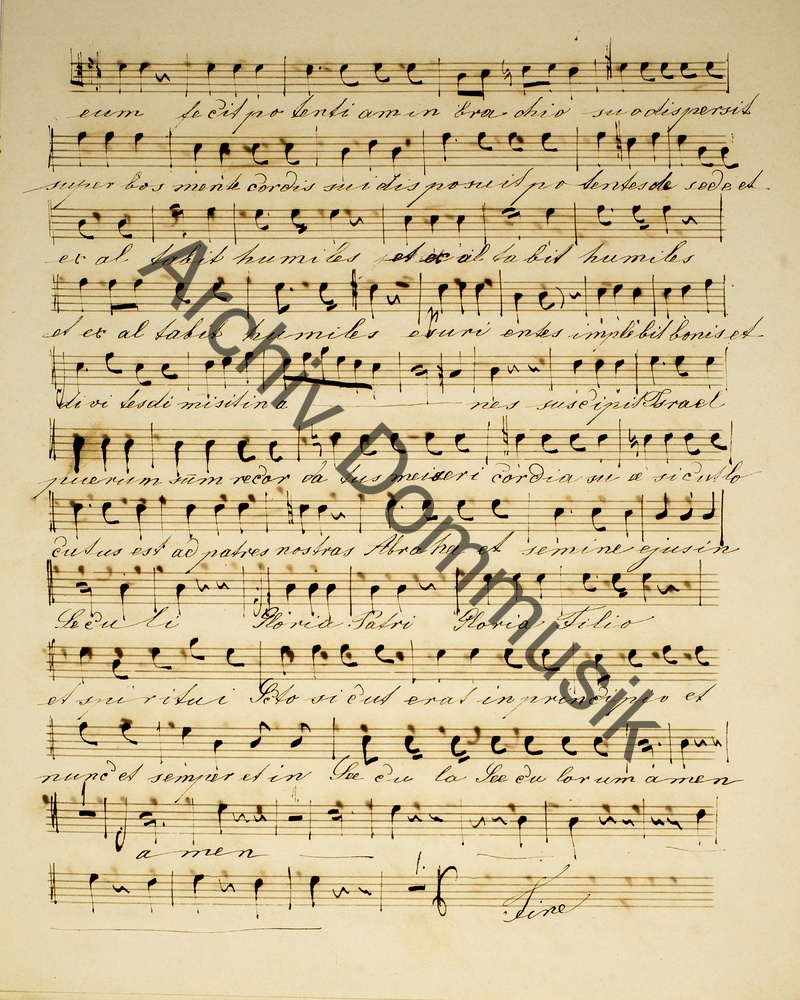 eum fecit po tenti am in bra chio suo dispersit
super bos mente cordis sui dis posuit po tentes de sede et
ex al tabit humiles et ex al ta bit humiles
et ex al tabit humiles esuri entes implebit bonis et
di vi tes di misit in a nes suscipit Israel
puerum sūm recor da tus meiseri cordia su æ sicut lo
cutus est ad patres nostras Abra ha et semine ejus in
Secu li Gloria Patri Gloria Filio
et spi ri tui Scto si cut erat in principio et
nunc et semper et in See cu la See cu lorum amen
a men
1.
Fine
Archiv Dommusik